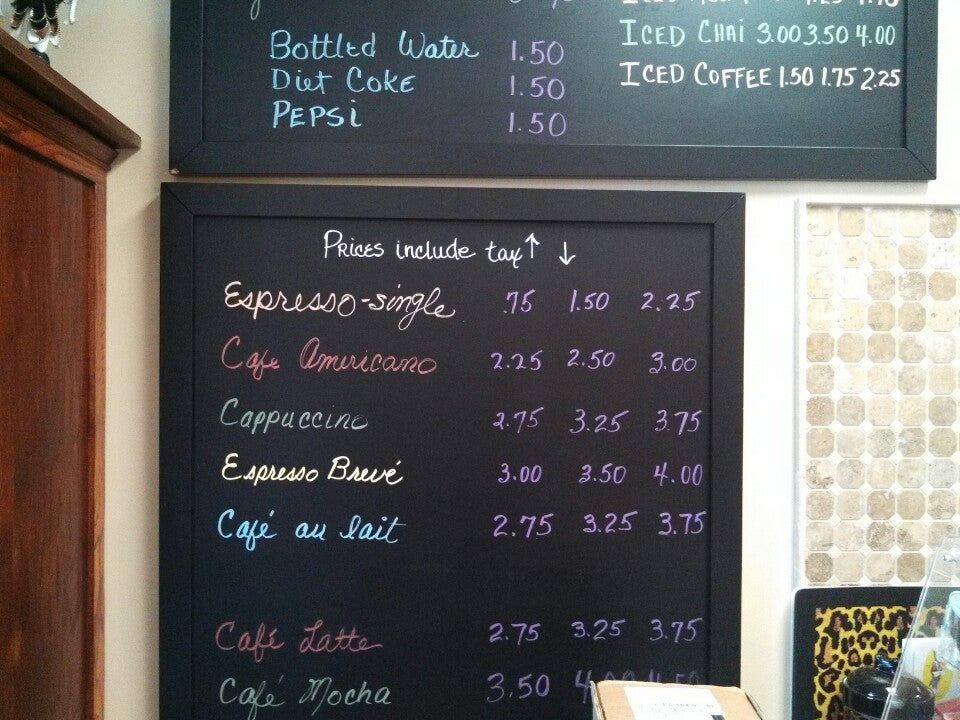 Bottled Water 1.50
Diet Coke 1.50
Pepsi 1.50
Iced Chai 3.00 3.50 4.00
Iced Coffee 1.50 1.75 2.25
Prices include tax ↑ ↓
Espresso-single .75 1.50 2.25
Cafe Americano 2.25 2.50 3.00
Cappuccino 2.75 3.25 3.75
Espresso Brevé 3.00 3.50 4.00
Café au lait 2.75 3.25 3.75
Café Latte 2.75 3.25 3.75
Café Mocha 3.50 4.00 4.50